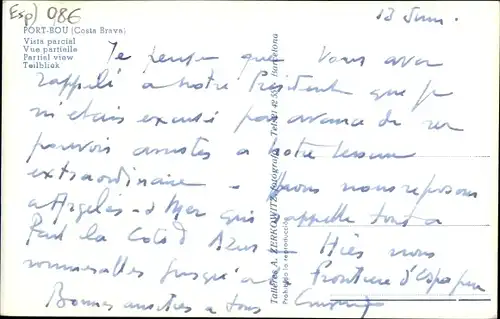 Esp) 086
13 Juin.
PORT-BOU (Costa Brava)
Vista parcial
Vue partielle
Partial view
Teilblick
Je pense que vous avez
rappelé a notre Président que je
m'étais excusé par avance de ne
pouvoir assister a notre
extraordinaire - Nous nous reposons
a Argelès-s-Mer qui rappelle tout a
Part la Cote d Azur - Hier nous
sommes allés jusqu'a la frontiere d'Espagne
Bonnes amitiés a tous
Talleres A. ZERKOWITZ, Fotografía - Teléf. Barcelona
Prohibida la reproducción